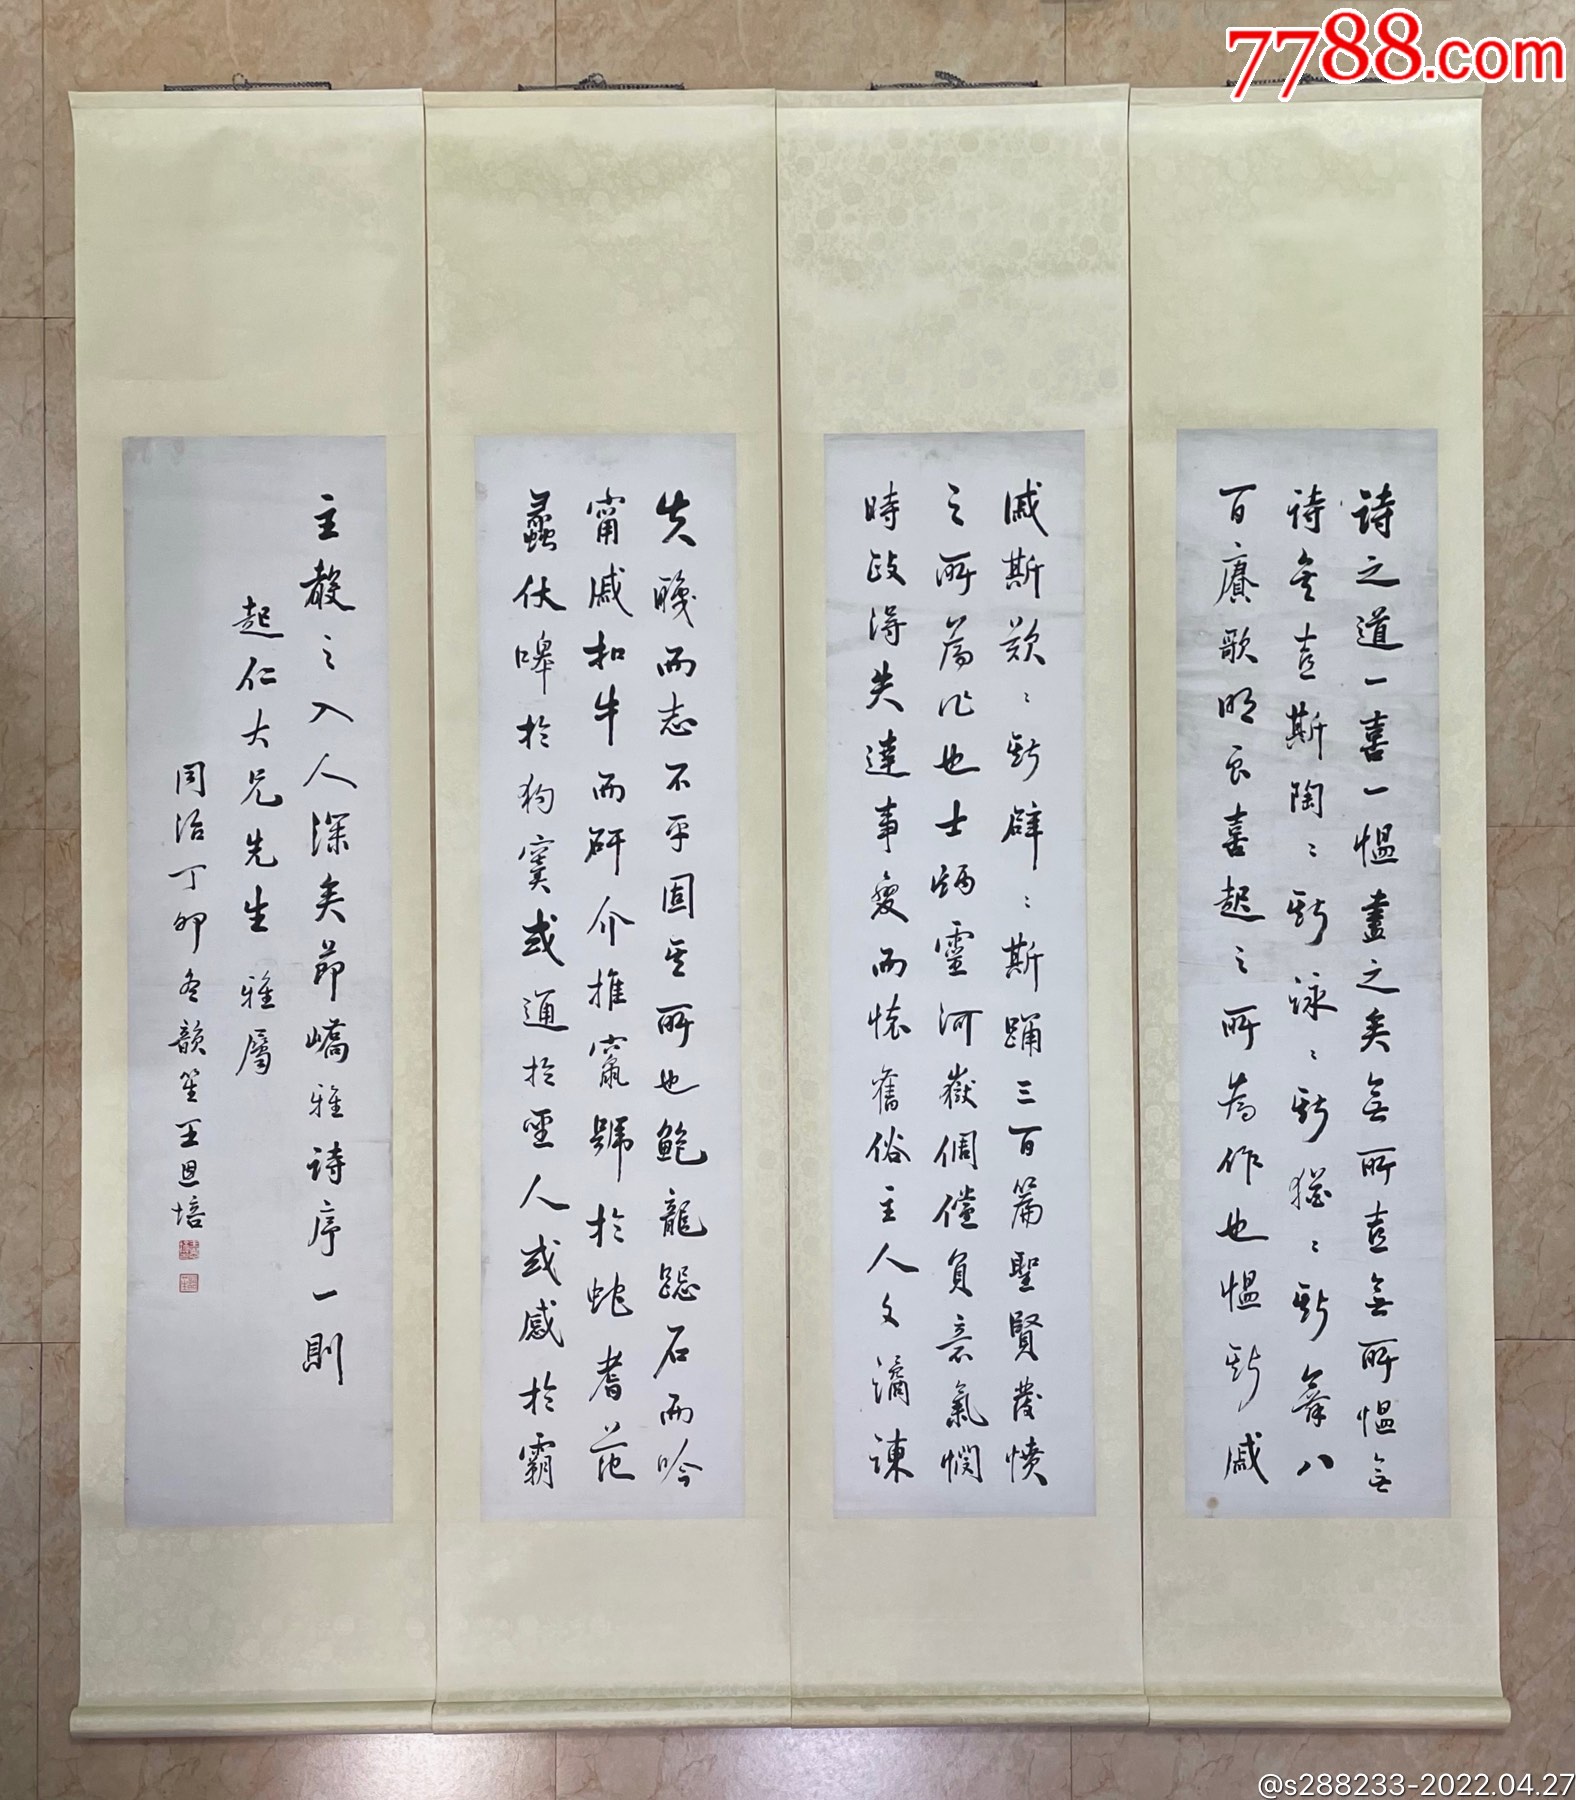 7788.com
詩之道一喜一愠盡之矣無所喜無所愠無
詩無喜斯陶〻斯詠〻斯猶〻斯舞八
百賡歌明良喜起之所為作也愠斯戚
戚斯歎〻斯辟〻斯踊三百篇聖賢發憤
之所為作也士炳靈河嶽倜儻負意氣憫
時政得失達事變而懷舊俗主人文譎諫
失職而志不平固其所也鮑龍跽石而吟
甯戚扣牛而研介推竄號於蛇耆范
蠡伏嘷於狗竇或通於聖人或感於霸
主聲之入人深矣節嶠雅詩序一則
起仁大兄先生 雅屬
同治丁卯冬韻笙王恩培
@s288233-2022.04.27